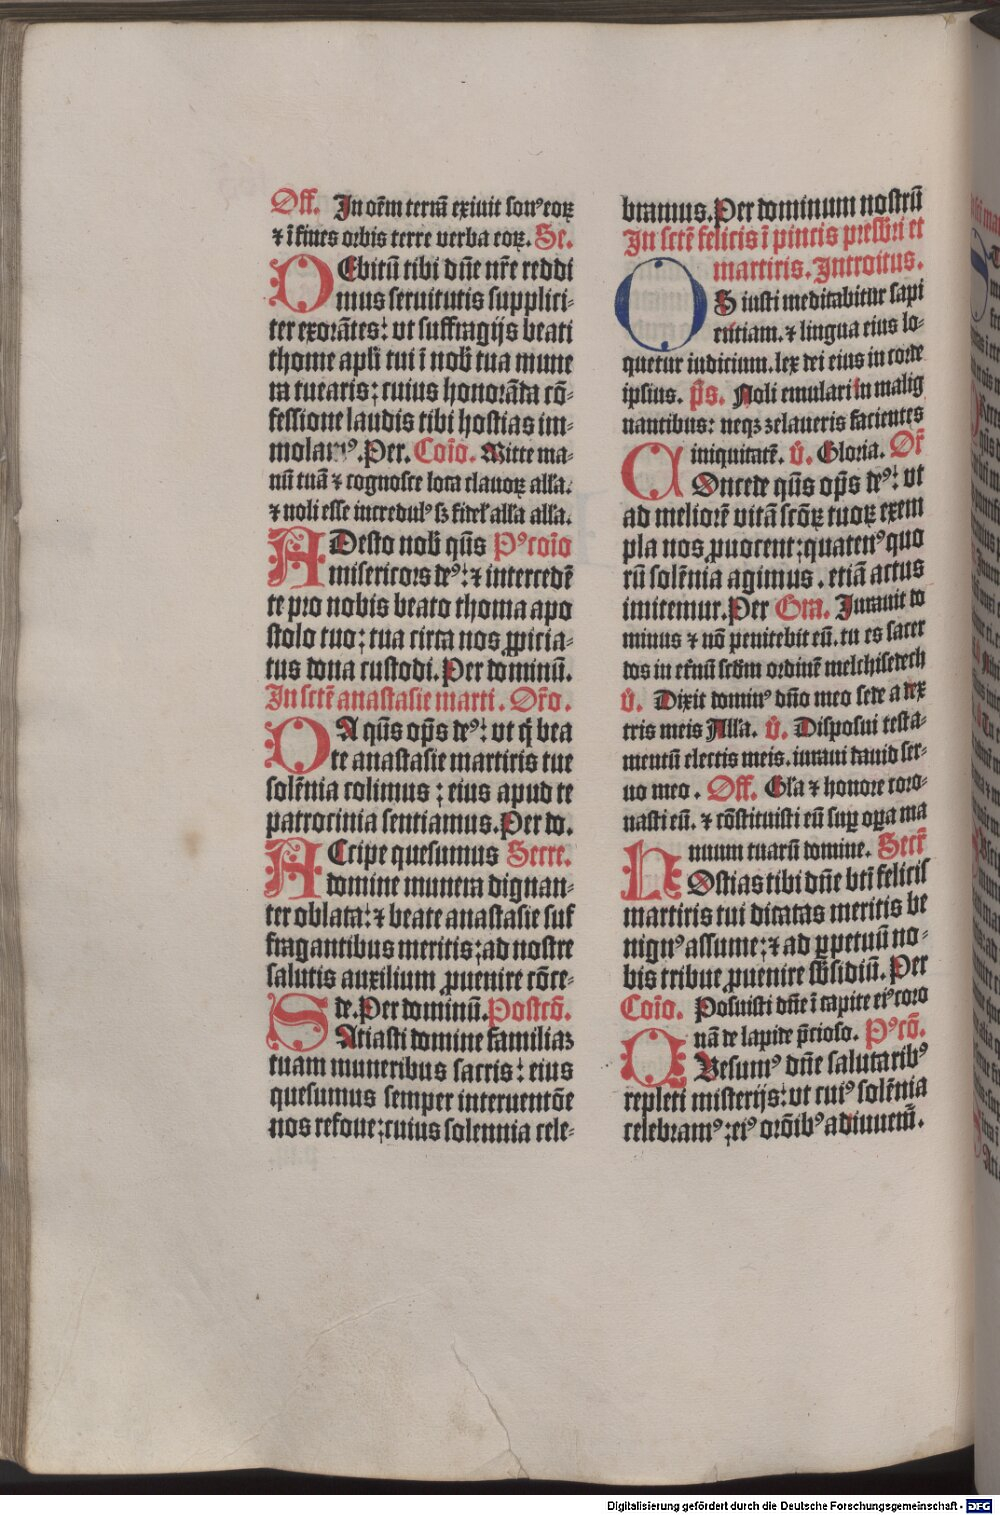 Off. In oēm terrā exiuit sonꝰ eoꝝ
⁊ ī fines orbis terre verba eoꝝ. Se.
DEbitū tibi dn̄e nr̄e reddi
mus seruitutis supplici-
ter exorātes: vt suffragijs beati
thome apl̄i tui ī nob̄ tua mune
ra tuearis; cuius honorāda cō-
fessione laudis tibi hostias im-
molamꝰ. Per. Coīo. Mitte ma-
nū tuā ⁊ cognosce loca clauoꝝ all̄a.
⁊ noli esse incredulꝰ sꝫ fidel̄ all̄a all̄a.
ADesto nob̄ qūs Pꝰcoīo
misericors deꝰ: ⁊ intercedē
te pro nobis beato thoma apo
stolo tuo; tua circa nos ꝓpicia-
tus dona custodi. Per dominū.
In sctē anastasie marti. Or̄o.
DA qūs op̄s deꝰ: vt q̄ bea
te anastasie martiris tue
solēnia colimus; eius apud te
patrocinia sentiamus. Per do.
ACcipe quesumus Secre.
domine munera dignan-
ter oblata: ⁊ beate anastasie suf
fragantibus meritis; ad nostre
salutis auxilium ꝓuenire cōce-
de. Per dominū. Postcō.
SAtiasti domine familiaꝫ
tuam muneribus sacris: eius
quesumus semper interuentōe
nos refoue; cuius solennia cele-
bramus. Per dominum nostrū
In sctē felicis ī pincis presbr̄i et
martiris. Introitus.
OS iusti meditabitur sapi
entiam. ⁊ lingua eius lo-
quetur iudicium. lex dei eius in corde
ipsius. p̄s. Noli emulari in malig
nantibus: neqꝫ zelaueris facientes
iniquitatē. v̄. Gloria. Or̄
COncede qūs op̄s deꝰ: vt
ad meliorē vitā scōꝝ tuoꝝ exem
pla nos ꝓuocent; quatenꝰ quo
rū solēnia agimus. etiā actus
imitemur. Per Gra. Iurauit do
minus ⁊ nō penitebit eū. tu es sacer
dos in et̄nū scdm ordinē melchisedech
v̄. Dixit dominꝰ dn̄o meo sede a dex
tris meis All̄a. v̄. Disposui testa-
mentū electis meis. iuraui dauid ser-
uo meo. Off. Gl̄a ⁊ honore coro-
nasti eū. ⁊ cōstituisti eū suꝑ oꝑa ma
nuum tuarū domine. Secr̄
HOstias tibi dn̄e bt̄i felicis
martiris tui dicatas meritis be
nignꝰ assume; ⁊ ad ꝑpetuū no-
bis tribue ꝓuenire sb̄sidiū. Per
Coīo. Posuisti dn̄e ī capite eiꝰ coro
nā de lapide p̄cioso. Pꝰcō.
QUesumꝰ dn̄e salutaribꝰ
repleti misterijs: vt cuiꝰ solēnia
celebramꝰ; eiꝰ orōibꝰ adiuuem̄.
Digitalisierung gefördert durch die Deutsche Forschungsgemeinschaft - DFG